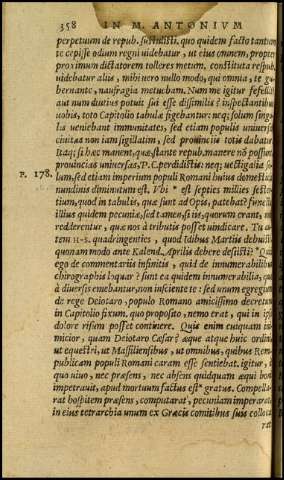 358 IN M. ANTONIVM
perpetuum de repub. sustulisti. quo quidem facto tantum
te cepisse odium regni uidebatur, ut eius omnem, propter
proximum dictatorem tolleres metum. constituta respub.
uidebatur alijs, mihi uero nullo modo, qui omnia, te gu-
bernante, naufragia metuebam. Num me igitur fefellit?
aut num diutius potuit sui esse dissimilis? inspectantibus
uobis, toto Capitolio tabulæ figebantur: neq; solum singu-
lis ueniebant immunitates, sed etiam populis uniuersis
ciuitas non iam sigillatim, sed prouincijs totis dabatur.
Itaq; si hæc manent, quæ stante repub. manere nō possunt,
prouincias uniuersas, P. C. perdidistis: neq; uectigalia so-
P. 178. lum, sed etiam imperium populi Romani huius domesticis
nundinis diminutum est. Vbi * est septies millies sester-
tium, quod in tabulis, quæ sunt ad Opis, patebat? funestæ
illius quidem pecuniæ, sed tamen, si ijs, quorum erant, non
redderentur, quæ nos à tributis posset uindicare. Tu au-
tem H-S. quadringenties, quod Idibus Martijs debuisti,
quonam modo ante Kalend. Aprilis debere desijsti? * Quid
ego de commentarijs infinitis, quid de innumerabilibus
chirographis loquar? sunt ea quidem innumerabilia, quæ
à diuersis emebantur, non insciente te: sed unum egregium
de rege Deiotaro, populo Romano amicissimo decretum
in Capitolio fixum, quo proposito, nemo erat, qui in ipso
dolore risum posset continere. Quis enim cuiquam ini-
micior, quam Deiotaro Cæsar? æque atque huic ordini,
ut equestri, ut Massiliensibus, ut omnibus, quibus Rem-
publicam populi Romani caram esse sentiebat. igitur, à
quo uiuo, nec præsens, nec absens quidquam æqui boni
impetrauit, apud mortuum factus est * gratus. Compella-
rat hospitem præsens, computarat, pecuniam imperarat,
in eius tetrarchia unum ex Græcis comitibus suis colloca-
rat